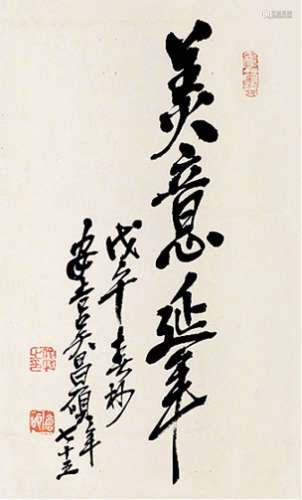 美意延年
戊午春杪
安吉吳昌碩年
七十五